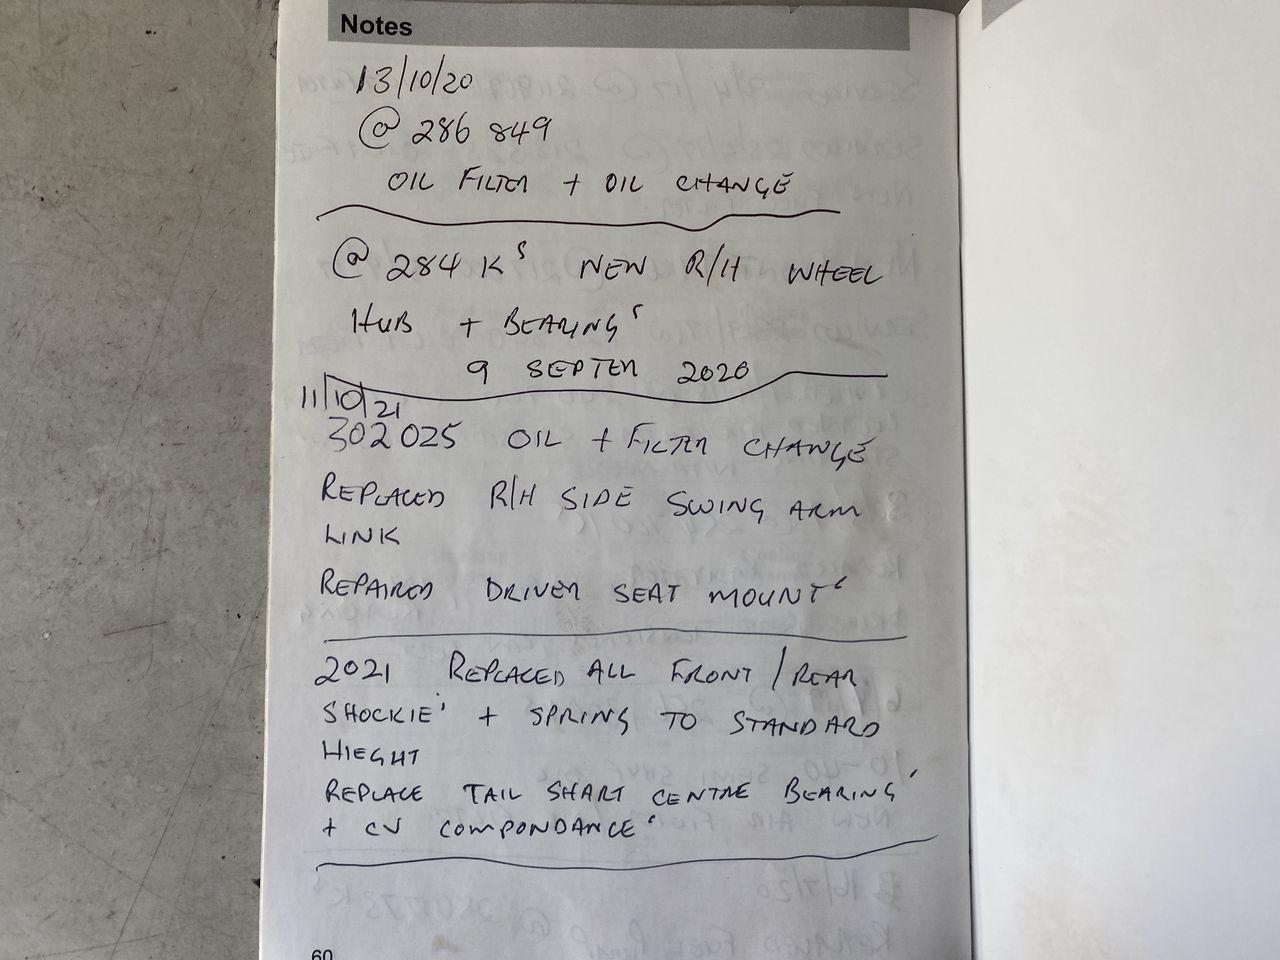 Notes
13/10/20
@ 286 849
OIL FILTER + OIL CHANGE
@ 284 Ks NEW R/H WHEEL
HUB + BEARINGs
9 SEPTEM 2020
11/10/21
302025 OIL + FILTER CHANGE
REPLACED R/H SIDE SWING ARM
LINK
REPAIRED DRIVER SEAT MOUNTs
2021 REPLACED ALL FRONT / REAR
SHOCKIEs + SPRING TO STANDARD
HIEGHT
REPLACE TAIL SHART CENTRE BEARINGs
+ CV COMPONDANCEs
60